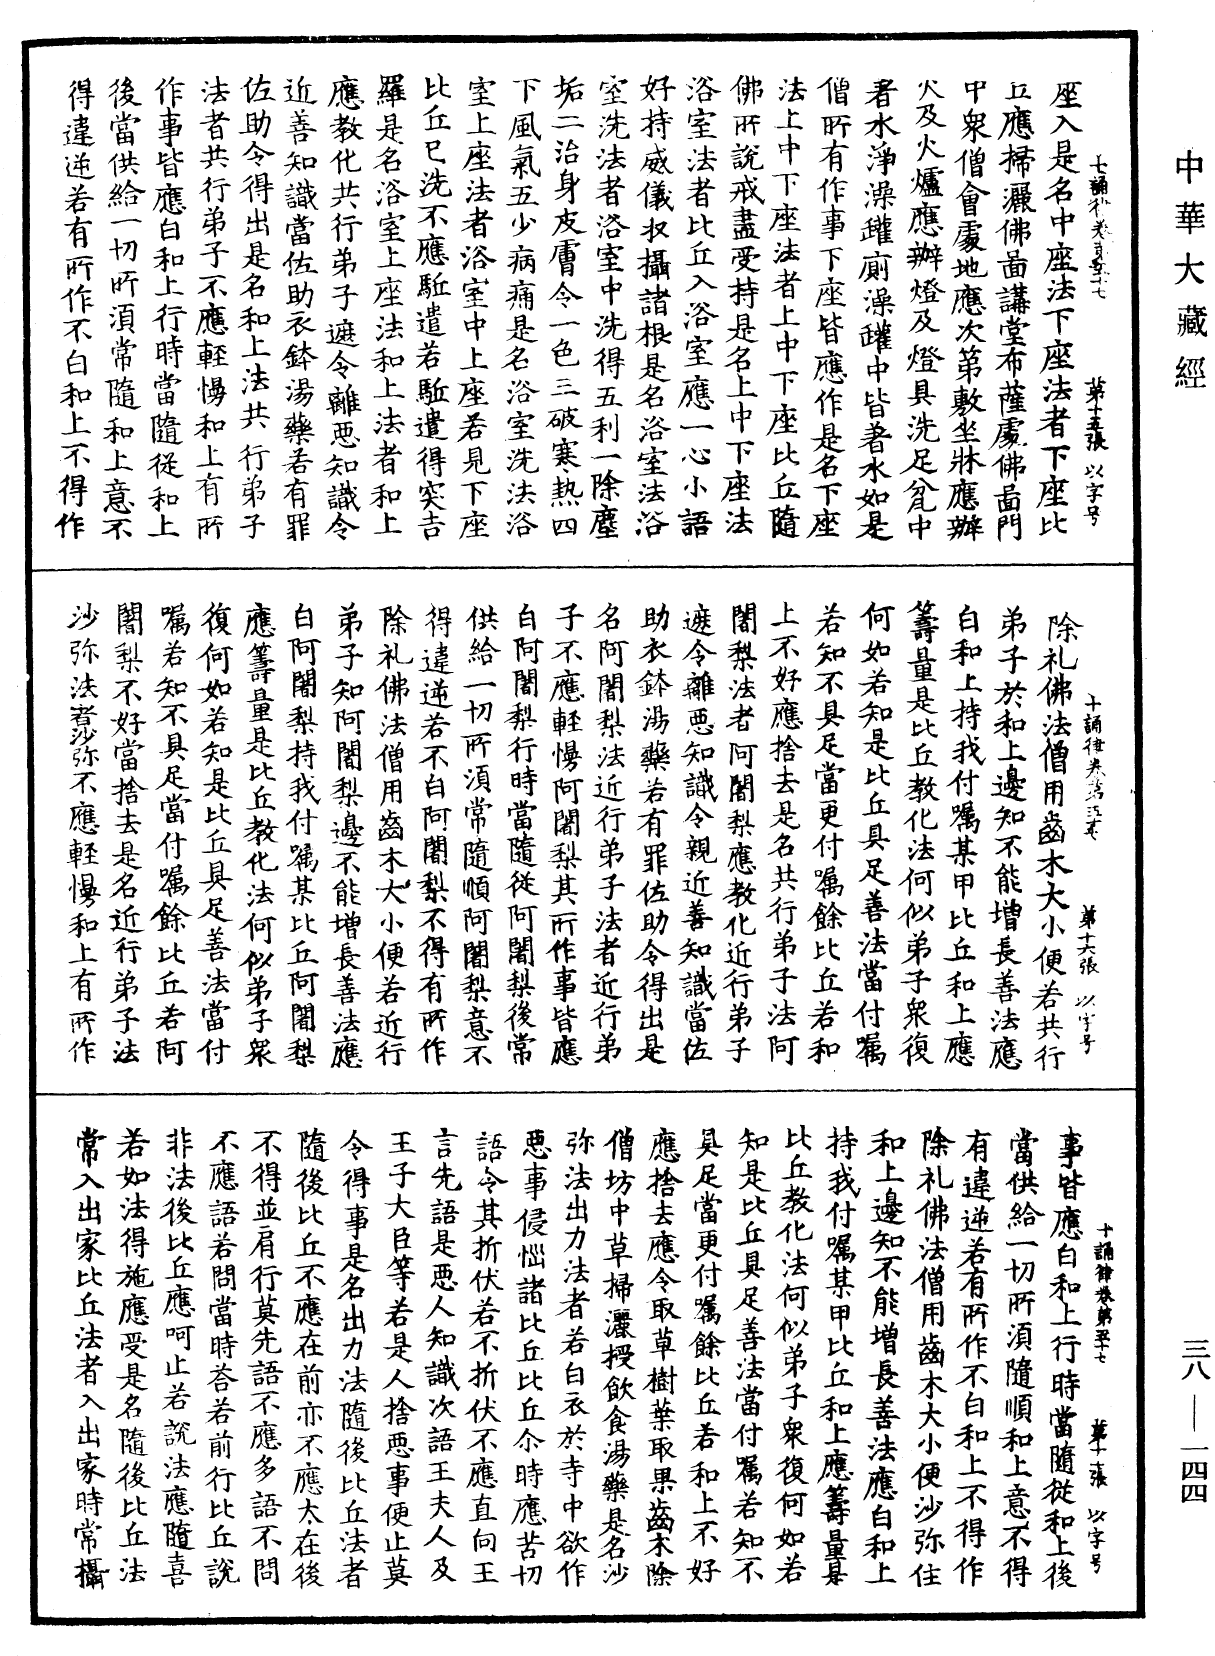 中華大藏經
座入是名中座法下座法者下座比
丘應掃灑佛啚講堂布薩處佛啚門
中衆僧會處地應次第敷坐牀應辦
火及火爐應辦燈及燈具洗足瓮中
著水淨澡罐廁澡罐中皆著水如是
僧所有作事下座皆應作是名下座
法上中下座法者上中下座比丘隨
佛所說戒盡受持是名上中下座法
浴室法者比丘入浴室應一心小語
好持威儀收攝諸根是名浴室法浴
室洗法者浴室中洗得五利一除塵
垢二治身皮膚令一色三破寒熱四
下風氣五少病痛是名浴室洗法浴
室上座法者浴室中上座若見下座
比丘已洗不應駈遣若駈遣得突吉
羅是名浴室上座法和上法者和上
應教化共行弟子遮令離惡知識令
近善知識當佐助衣鉢湯藥若有罪
佐助令得出是名和上法共行弟子
法者共行弟子不應輕慢和上有所
作事皆應白和上行時當隨從和上
後當供給一切所須常隨和上意不
得違逆若有所作不白和上不得作
第十五張 以字号
除礼佛法僧用齒木大小便若共行
弟子於和上邊知不能增長善法應
白和上持我付嘱某甲比丘和上應
籌量是比丘教化法何似弟子衆復
何如若知是比丘具足善法當付嘱
若知不具足當更付嘱餘比丘若和
上不好應捨去是名共行弟子法阿
闍梨法者阿闍梨應教化近行弟子
遮令離惡知識令親近善知識當佐
助衣鉢湯藥若有罪佐助令得出是
名阿闍梨法近行弟子法者近行弟
子不應輕慢阿闍梨其所作事皆應
白阿闍梨行時當隨從阿闍梨後常
供給一切所須常隨順阿闍梨意不
得違逆若不白阿闍梨不得有所作
除礼佛法僧用齒木大小便若近行
弟子知阿闍梨邊不能增長善法應
白阿闍梨持我付嘱某比丘阿闍梨
應籌量是比丘教化法何似弟子衆
復何如若知是比丘具足善法當付
嘱若知不具足當付嘱餘比丘若阿
闍梨不好當捨去是名近行弟子法
沙弥法者沙弥不應輕慢和上有所作
第十六張 以字号
事皆應白和上行時當隨從和上後
當供給一切所須隨順和上意不得
有違逆若有所作不白和上不得作
除礼佛法僧用齒木大小便沙弥住
和上邊知不能增長善法應白和上
持我付嘱某甲比丘和上應籌量是
比丘教化法何似弟子衆復何如若
知是比丘具足善法當付嘱若知不
具足當更付嘱餘比丘若和上不好
應捨去應令取草樹葉取果齒木除
僧坊中草掃灑授飲食湯藥是名沙
弥法出力法者若白衣於寺中欲作
惡事侵惱諸比丘比丘尒時應苦切
語令其折伏若不折伏不應直向王
言先語是惡人知識次語王夫人及
王子大臣等若是人捨惡事便止莫
令得事是名出力法隨後比丘法者
隨後比丘不應在前亦不應太在後
不得並肩行莫先語不應多語不問
不應語若問當時荅若前行比丘說
非法後比丘應呵止若說法應隨喜
若如法得施應受是名隨後比丘法
常入出家比丘法者入出家時常攝
十誦律卷第五十七 第十七張 以字号
三八—一四四